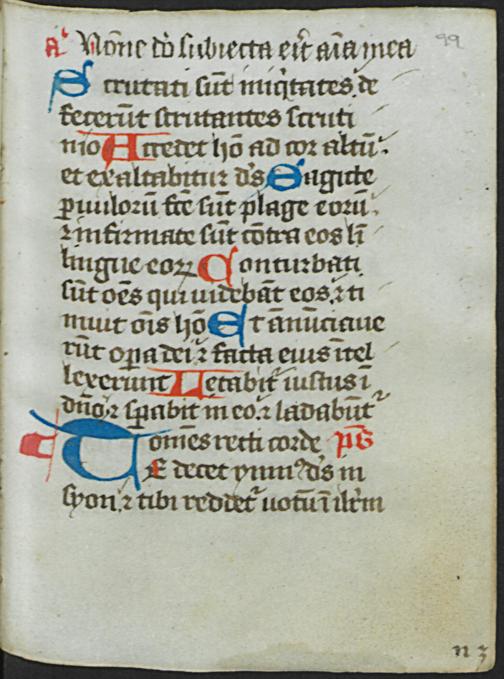 99
a͛ Nõne dõ subiecta eri͛t aĩa mea
Scrutati sũt iniq̃tates. de
fecerũt scrutantes scruti
nio Accedet hõ ad cor altũ.
et exaltabitur ds̃ Sagitte
ꝑuulorũ fc̃e sũt plage eorũ.
⁊ infirmate sũt cõtra eos li
lingue eoꝝ Conturbati
sũt oẽs qui uidebãt eos. ⁊ ti
muit oĩs hõ Et ãnũciaue
rũt oꝑa dei ⁊ facta eius ĩtel
lexerunt Letabit͛ iustus ĩ
dño ⁊ sꝑabit in eo. ⁊ ladabũt͛
omẽs recti corde p̃s
TE decet ymn᷒ ds̃ in
syon. ⁊ tibi reddet͛ uotũ ĩ ilr̃m
n 3